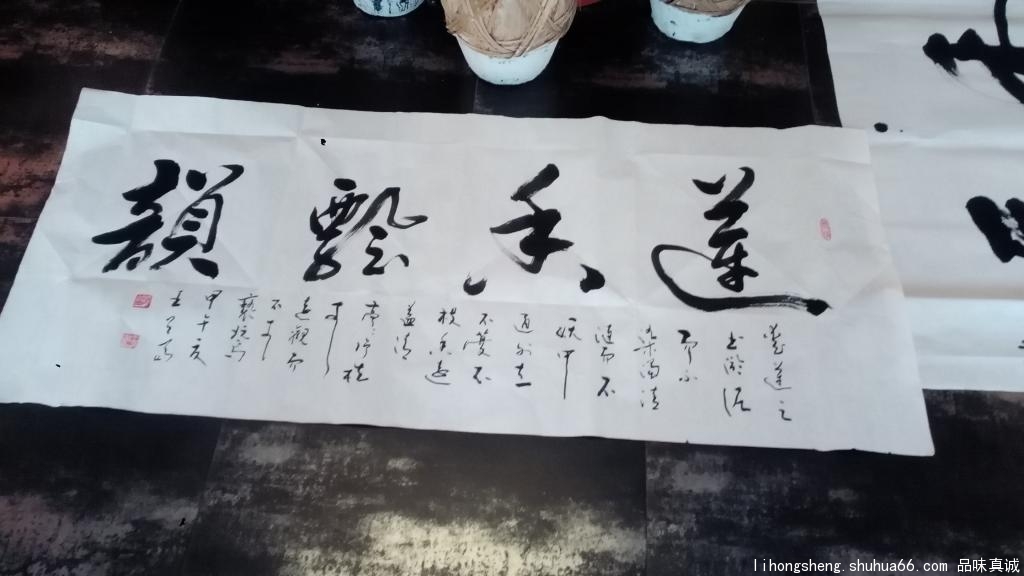 蓮香飄韻
愛蓮之
出淤泥
而不
染濯清
漣而不
妖中
通外直
不蔓不
枝香遠
益清
亭亭淨植
可
遠觀而
不可
褻玩焉
甲午夏
lihongsheng.shuhua66.com 品味真诚